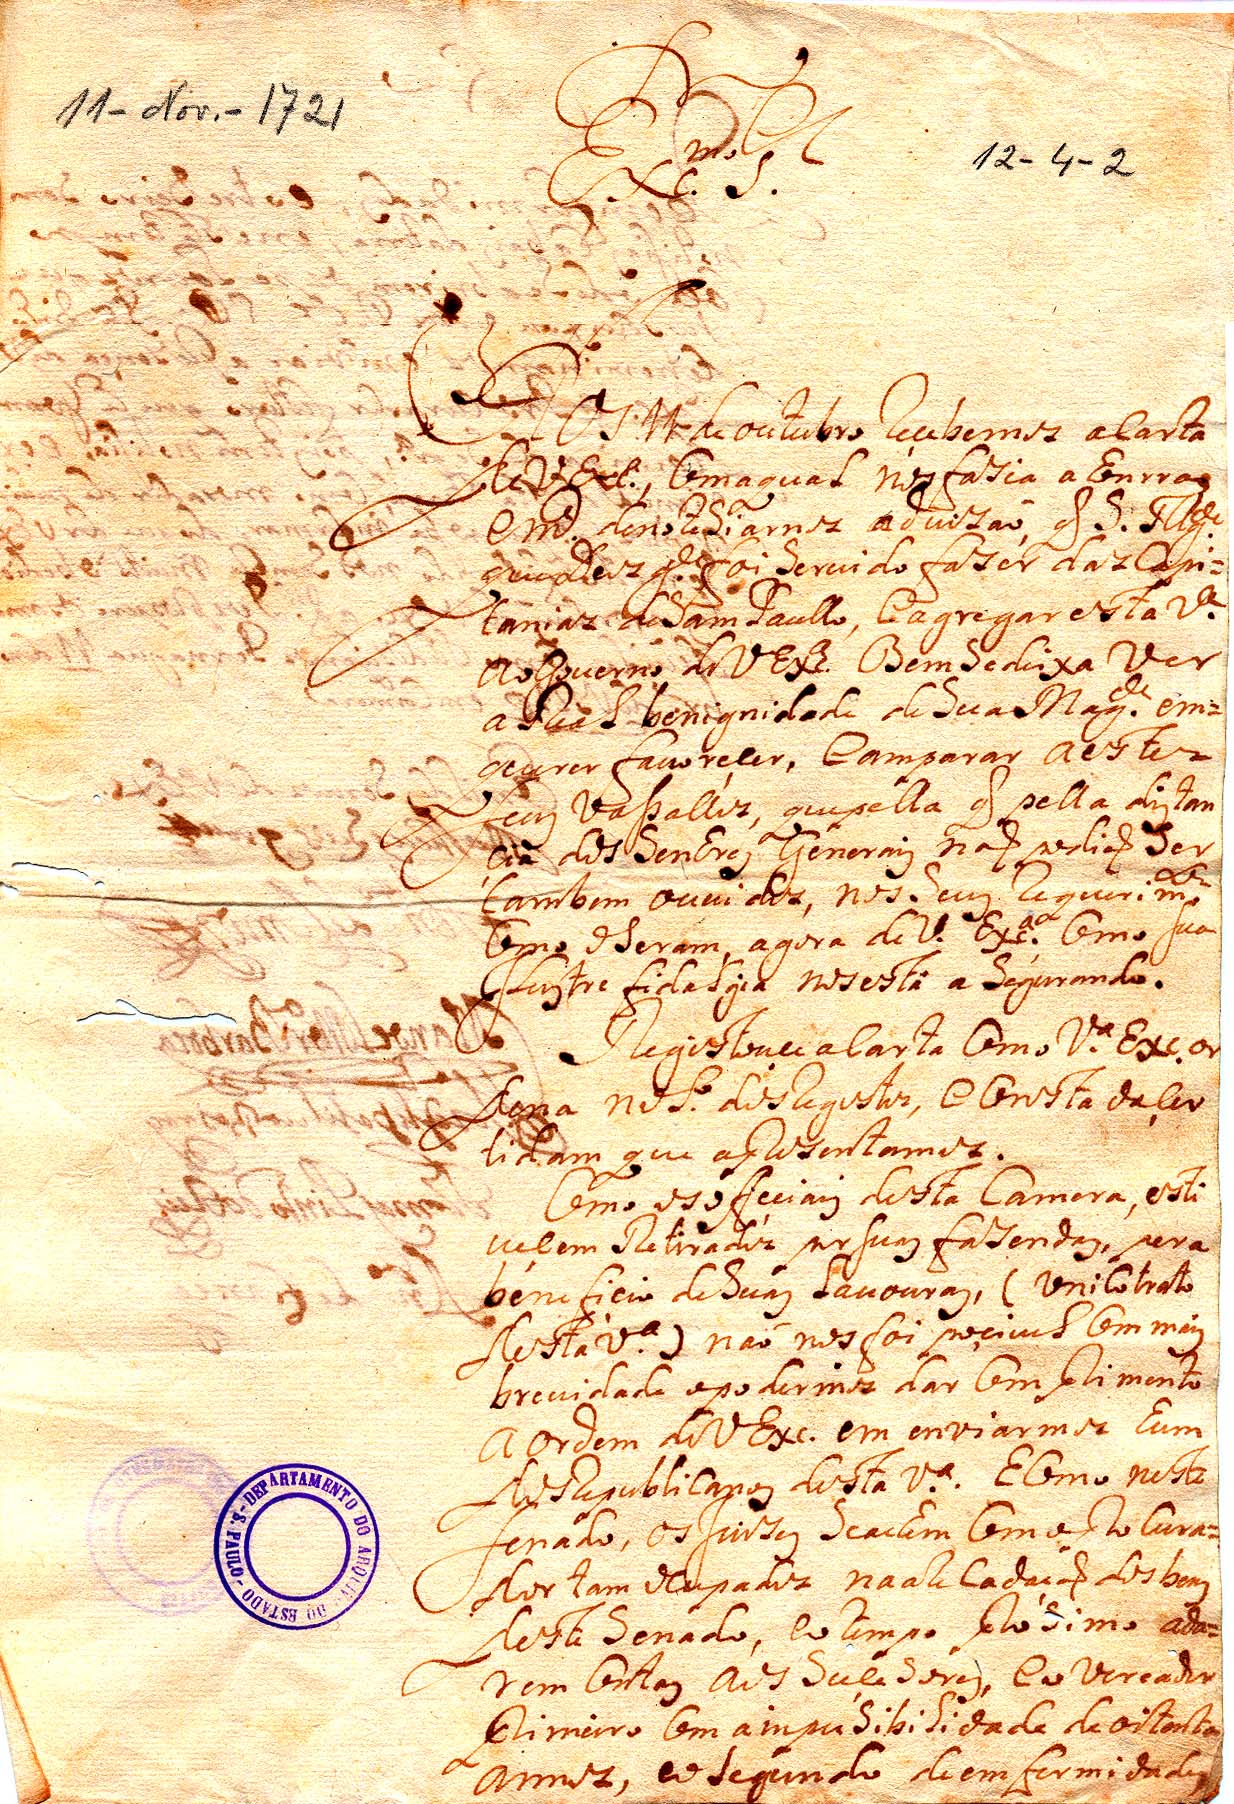 11- Nov.- 1721
12-4-2
Ex.mo S.
Aos 11 de outubro Recebemos a Carta
de V Ex.ª, Com a qual nos fasia a Honrra
e m.d de notesiarnos a duizaõ, q S. Mag.de
que Deos g.de foi Seruido faser das Capi=
tanias de Sam Paullo, e agregar esta V.ª
ao Gouerno de V Ex.ª Bem Se deixa Ver
a Real benignidade de Sua Mag.de em=
querer fauoreçer, e amparar a estes
seus Vaßallos, que pella distan
cia dos Senhores Generais naõ podiaõ Ser
tambem ouuidos, nos Seus Requerim.tos
Como o Seram agora de V.ª Ex.cª Como sua
Illustre fidalgia nos está a Segurando.
Registouçe a Carta Como V.ª Exc. or
dena no L.º dos Registos, e Consta da Cer
tidam que apresentamos.
Como os offeciais desta Camera, esti
ueçem Retirados por suas fasendas, pera
beneficio de Suas Lauouras, (Unico trato
desta V.ª) naõ nos foi poçiuel Com mais
breuidade o podermos dar Comprimento
a ordem de V Exc. em enviarmos hum
dos Republicanos desta V.ª. E Como neste
senado, os Juises Se achem Com o Procura=
dor tam ocupados na arecadaçaõ dos bens
deste Senado, e o tempo prosimo a da=
rem Contas aos Suçeçores, e o Vereador
Primeiro Com a inpusibilidade de oitenta
annos, e o Segundo de emfermidades
DEPARTAMENTO DO ARQUIVO DO ESTADO - S. PAULO